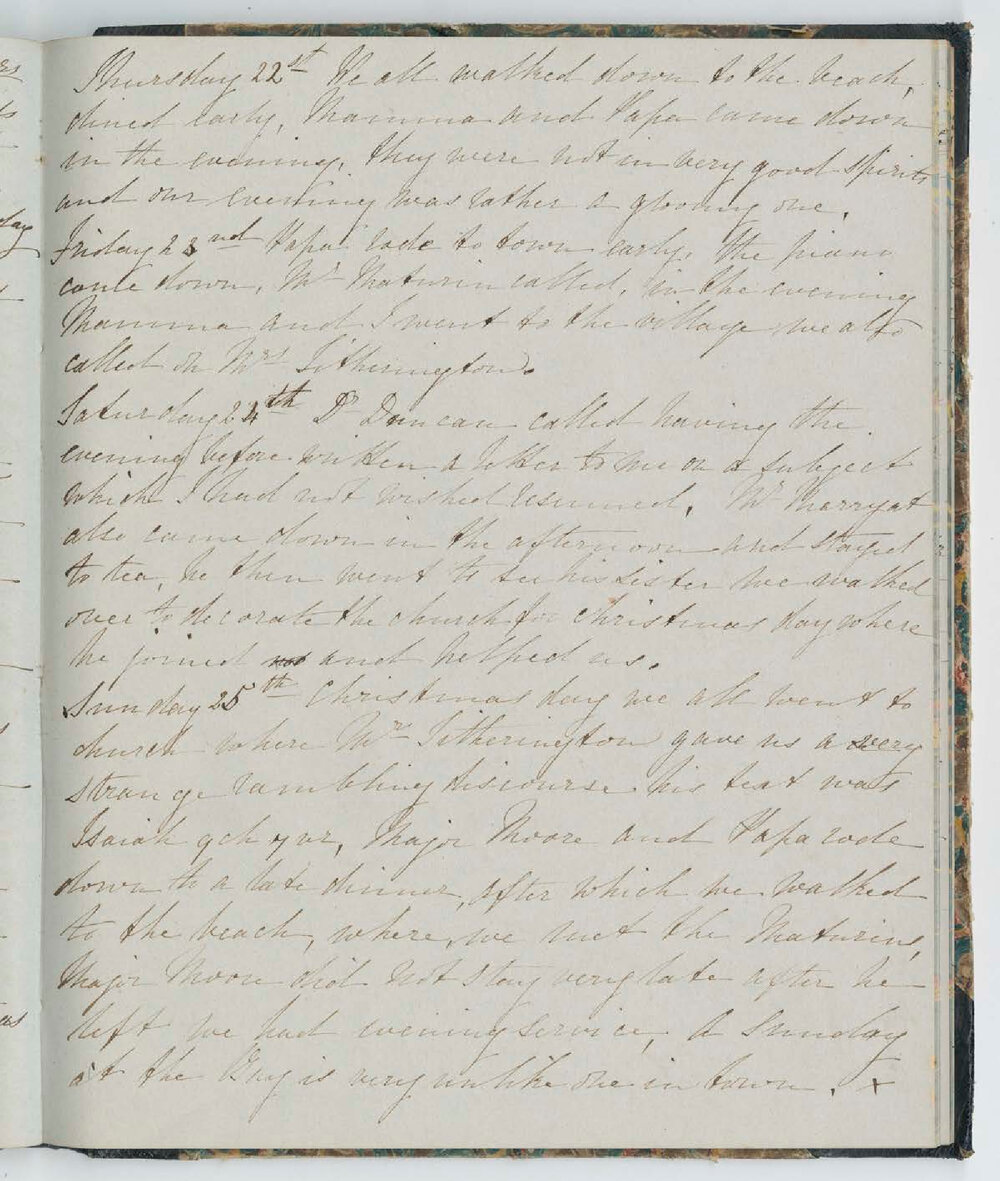 Thursday 22st We all walked down to the beach,
dined early, Mamma and Papa came down
in the evening, they were not in very good spirits
and our evening was rather a gloomy one.
Friday 23nd Papa rode to town early, the piano
came down, Mr Maturin called, in the evening
Mamma and I went to the village we also
called on Mrs Titherington.
Saturday 24th Dr Duncan called having the
evening before written a letter to me on a subject
which I had not wished resumed, Mr Marryat
also came down in the afternoon and stayed
to tea, he then went to see his sister we walked
over to decorate the church for Christmas day where
he joined and helped us.
Sunday 25th Christmas day we all went to
church where Mr Titherington gave us a very
strange rambling discourse his text was
Isaiah 9ch 7vr, Major Moore and Papa rode
down to a late dinner, after which we walked
to the beach, where, we met the Maturins,
Major Moore did not stay very late after he
left we had evening service, A Sunday
at the Bay is very unlike one in town. x